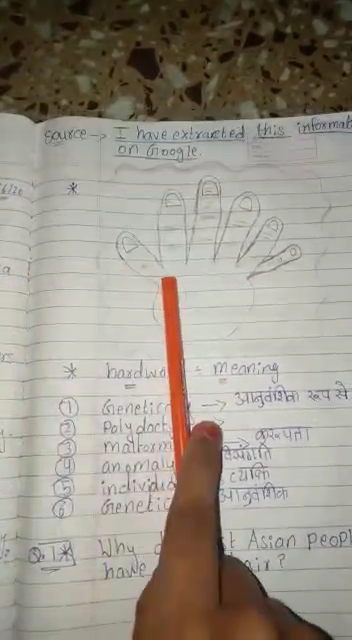 source → I have extracted this informat
on Google.
6/20
*
* hardwo - meaning
① Genetic → आनुवंशिक रूप से
② Polydact
③ malform → कुरूपता
④ anomaly
⑤ individ
⑥ Genetic आनुवंशिक
Q.1* Why d t Asian peopl
have air?